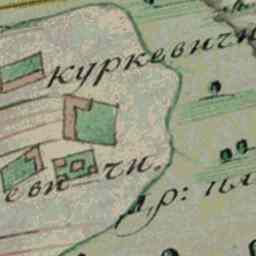 куркевичи
евичи.
др: